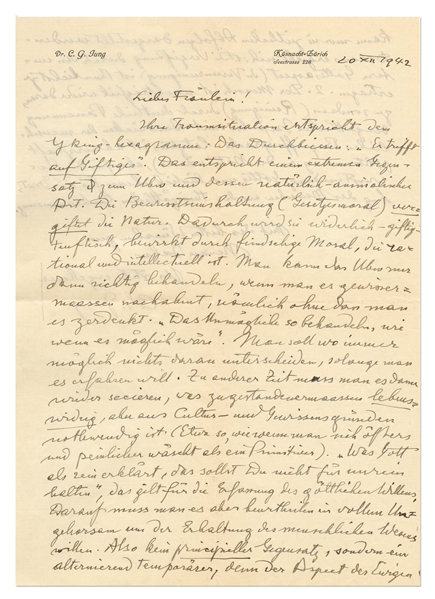 Dr. C. G. Jung
Küsnacht-Zürich
Seestrasse 228
20 XII 1942
Liebes Fräulein!
Ihre Traumsituation entspricht dem
Y king-hexagramm: Das Durchbeissen: „Er trifft
auf Giftiges". Das entspricht einem extremen Gegen-
satz zum Ubw und dessen natürlich-animalischer
Art. Die Bewusstseinshaltung (Gesetzesmoral) ver-
giftet die Natur. Dadurch wird sie widerlich-giftig-
teuflisch, bewirkt durch feindselige Moral, die ra-
tional und intellectuell ist. Man kann das Ubw nur
dann richtig behandeln, wenn man es gewisser=
maassen nachahmt, nämlich ohne dass man
es zerdenkt. „Das Unmögliche so behandeln, wie
wenn es möglich wäre". Man soll wo immer
möglich nichts daran unterscheiden, solange man
es erfahren will. Zu anderer Zeit muss man es dann
wieder secieren, was zugestandenermaassen lebens=
widrig, aber aus Cultur- und Gewissensgründen
nothwendig ist. (Etwa so, wie wenn man sich öfters
und peinlicher wäscht als ein Primitiver). „Was Gott
als rein erklärt, das sollst Du nicht für unrein
halten", das gilt für die Erfassung des göttlichen Willens,
Darauf muss man es aber beurtheilen in vollem Un=
gehorsam um der Erhaltung des menschlichen Wesens
willen. Also kein principieller Gegensatz, sondern ein
alternierend temporärer, denn der Aspect des Ewigen